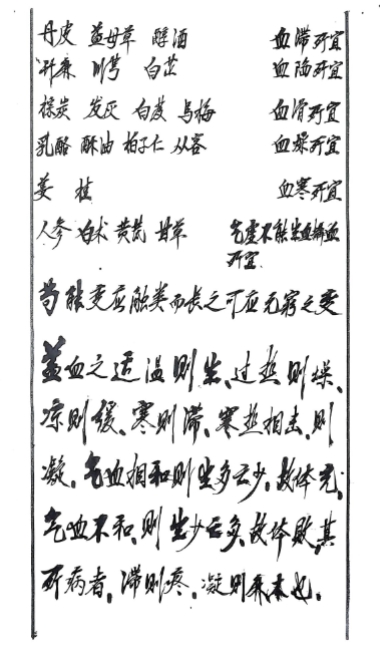 丹皮 益母草 醇酒 血滞所宜
升麻 川芎 白芷 血陷所宜
棕炭 发灰 白芨 乌梅 血滑所宜
乳酪 酥油 柏子仁 从容 血燥所宜
姜 桂 血寒所宜
人参 白术 黄芪 甘草 气虚不能生血摄血
所宜
苟能变应触类而长之可应无穷之变
盖血之适温则生、过热则燥、
凉则缓、寒则滞、寒热相击、则
凝。气血相和则生多云少。故体充。
气血不和、则生少云多、故体败、其
所病者、滞则疼、凝则麻木也。